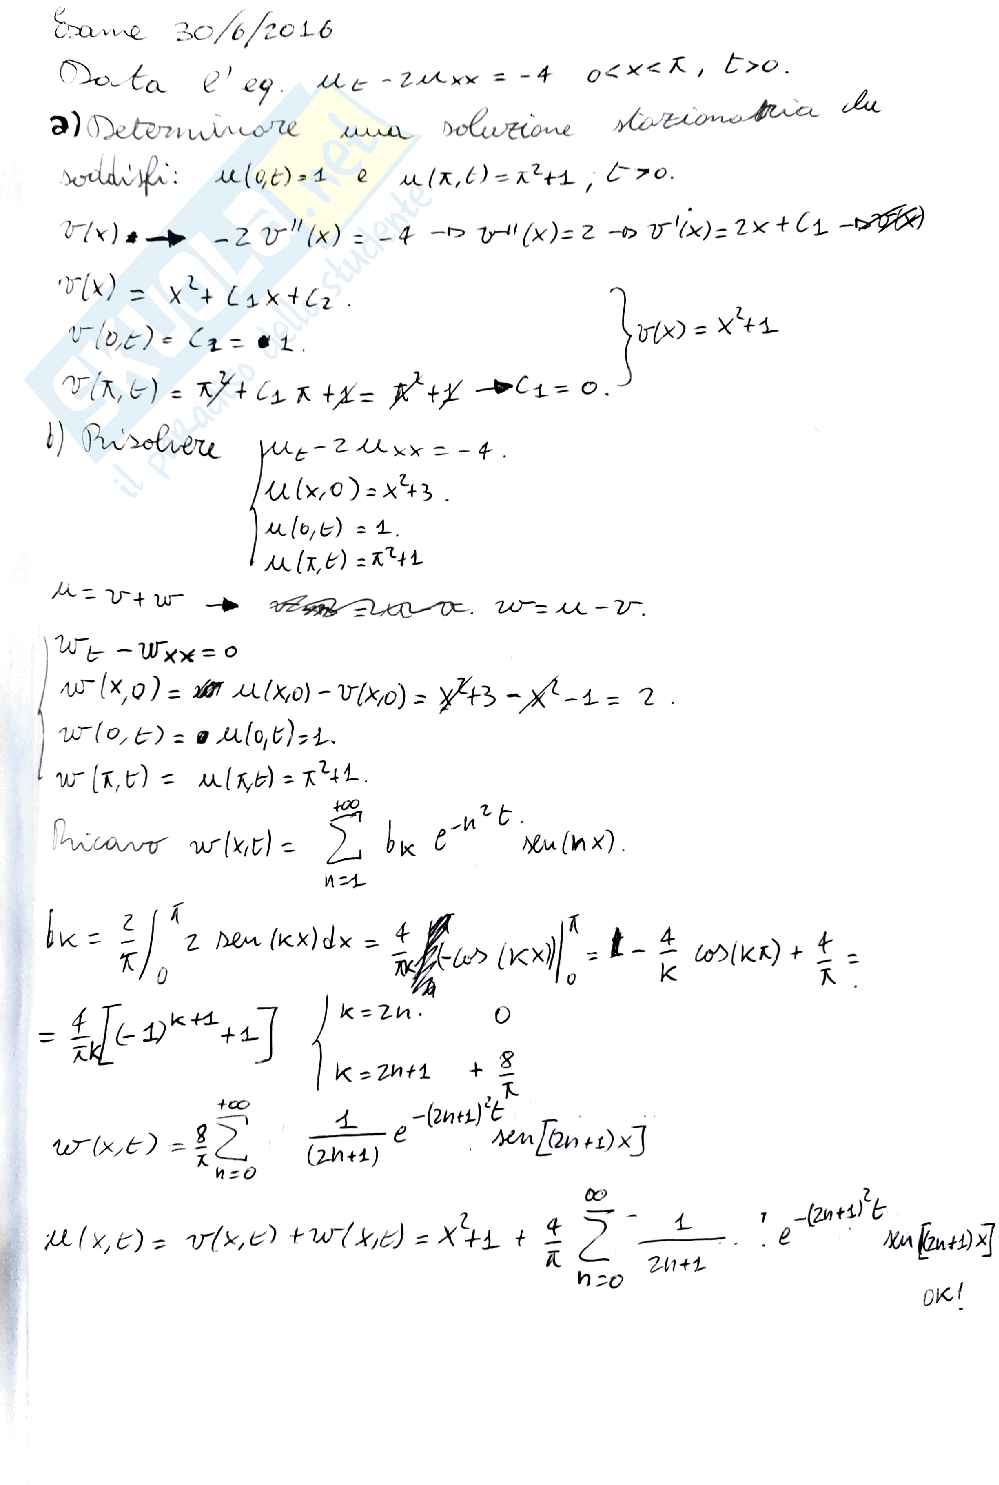 Esame 30/6/2016
Data l'eq. u_t - 2u_xx = -4 0<x<π, t>0.
a) Determinare una soluzione stazionaria che
soddisfi: u(0,t)=1 e u(π,t)=π²+1, t>0.
v(x) → -2v''(x) = -4 → v''(x)=2 → v'(x)=2x+C1 →
v(x) = x²+C1x+C2.
v(0,t) = C2 = 1.
v(π,t) = π²+C1π+1 = π²+1 → C1=0. } v(x) = x²+1
b) Risolvere { u_t - 2u_xx = -4.
u(x,0) = x²+3.
u(0,t) = 1.
u(π,t) = π²+1
u = v+w → w = u-v.
{ w_t - w_xx = 0
w(x,0) = u(x,0) - v(x,0) = x²+3-x²-1 = 2.
w(0,t) = u(0,t)=1.
w(π,t) = u(π,t) = π²+1.
Ricavo w(x,t) = Σ_{n=1}^{+∞} bk e^{-n²t} sen(nx).
bk = 2/π ∫_0^π 2 sen(kx)dx = 4/πk (-cos(kx))|_0^π = - 4/k cos(kπ) + 4/π =
= 4/πk [(-1)^{k+1}+1] { k=2n. 0
k=2n+1 + 8/π
w(x,t) = 8/π Σ_{n=0}^{+∞} 1/(2n+1) e^{-(2n+1)²t} sen[(2n+1)x]
u(x,t) = v(x,t)+w(x,t) = x²+1 + 4/π Σ_{n=0}^{∞} 1/2n+1 · e^{-(2n+1)²t} sen[(2n+1)x]
OK!
SKUOLA.net
il paradiso dello studente